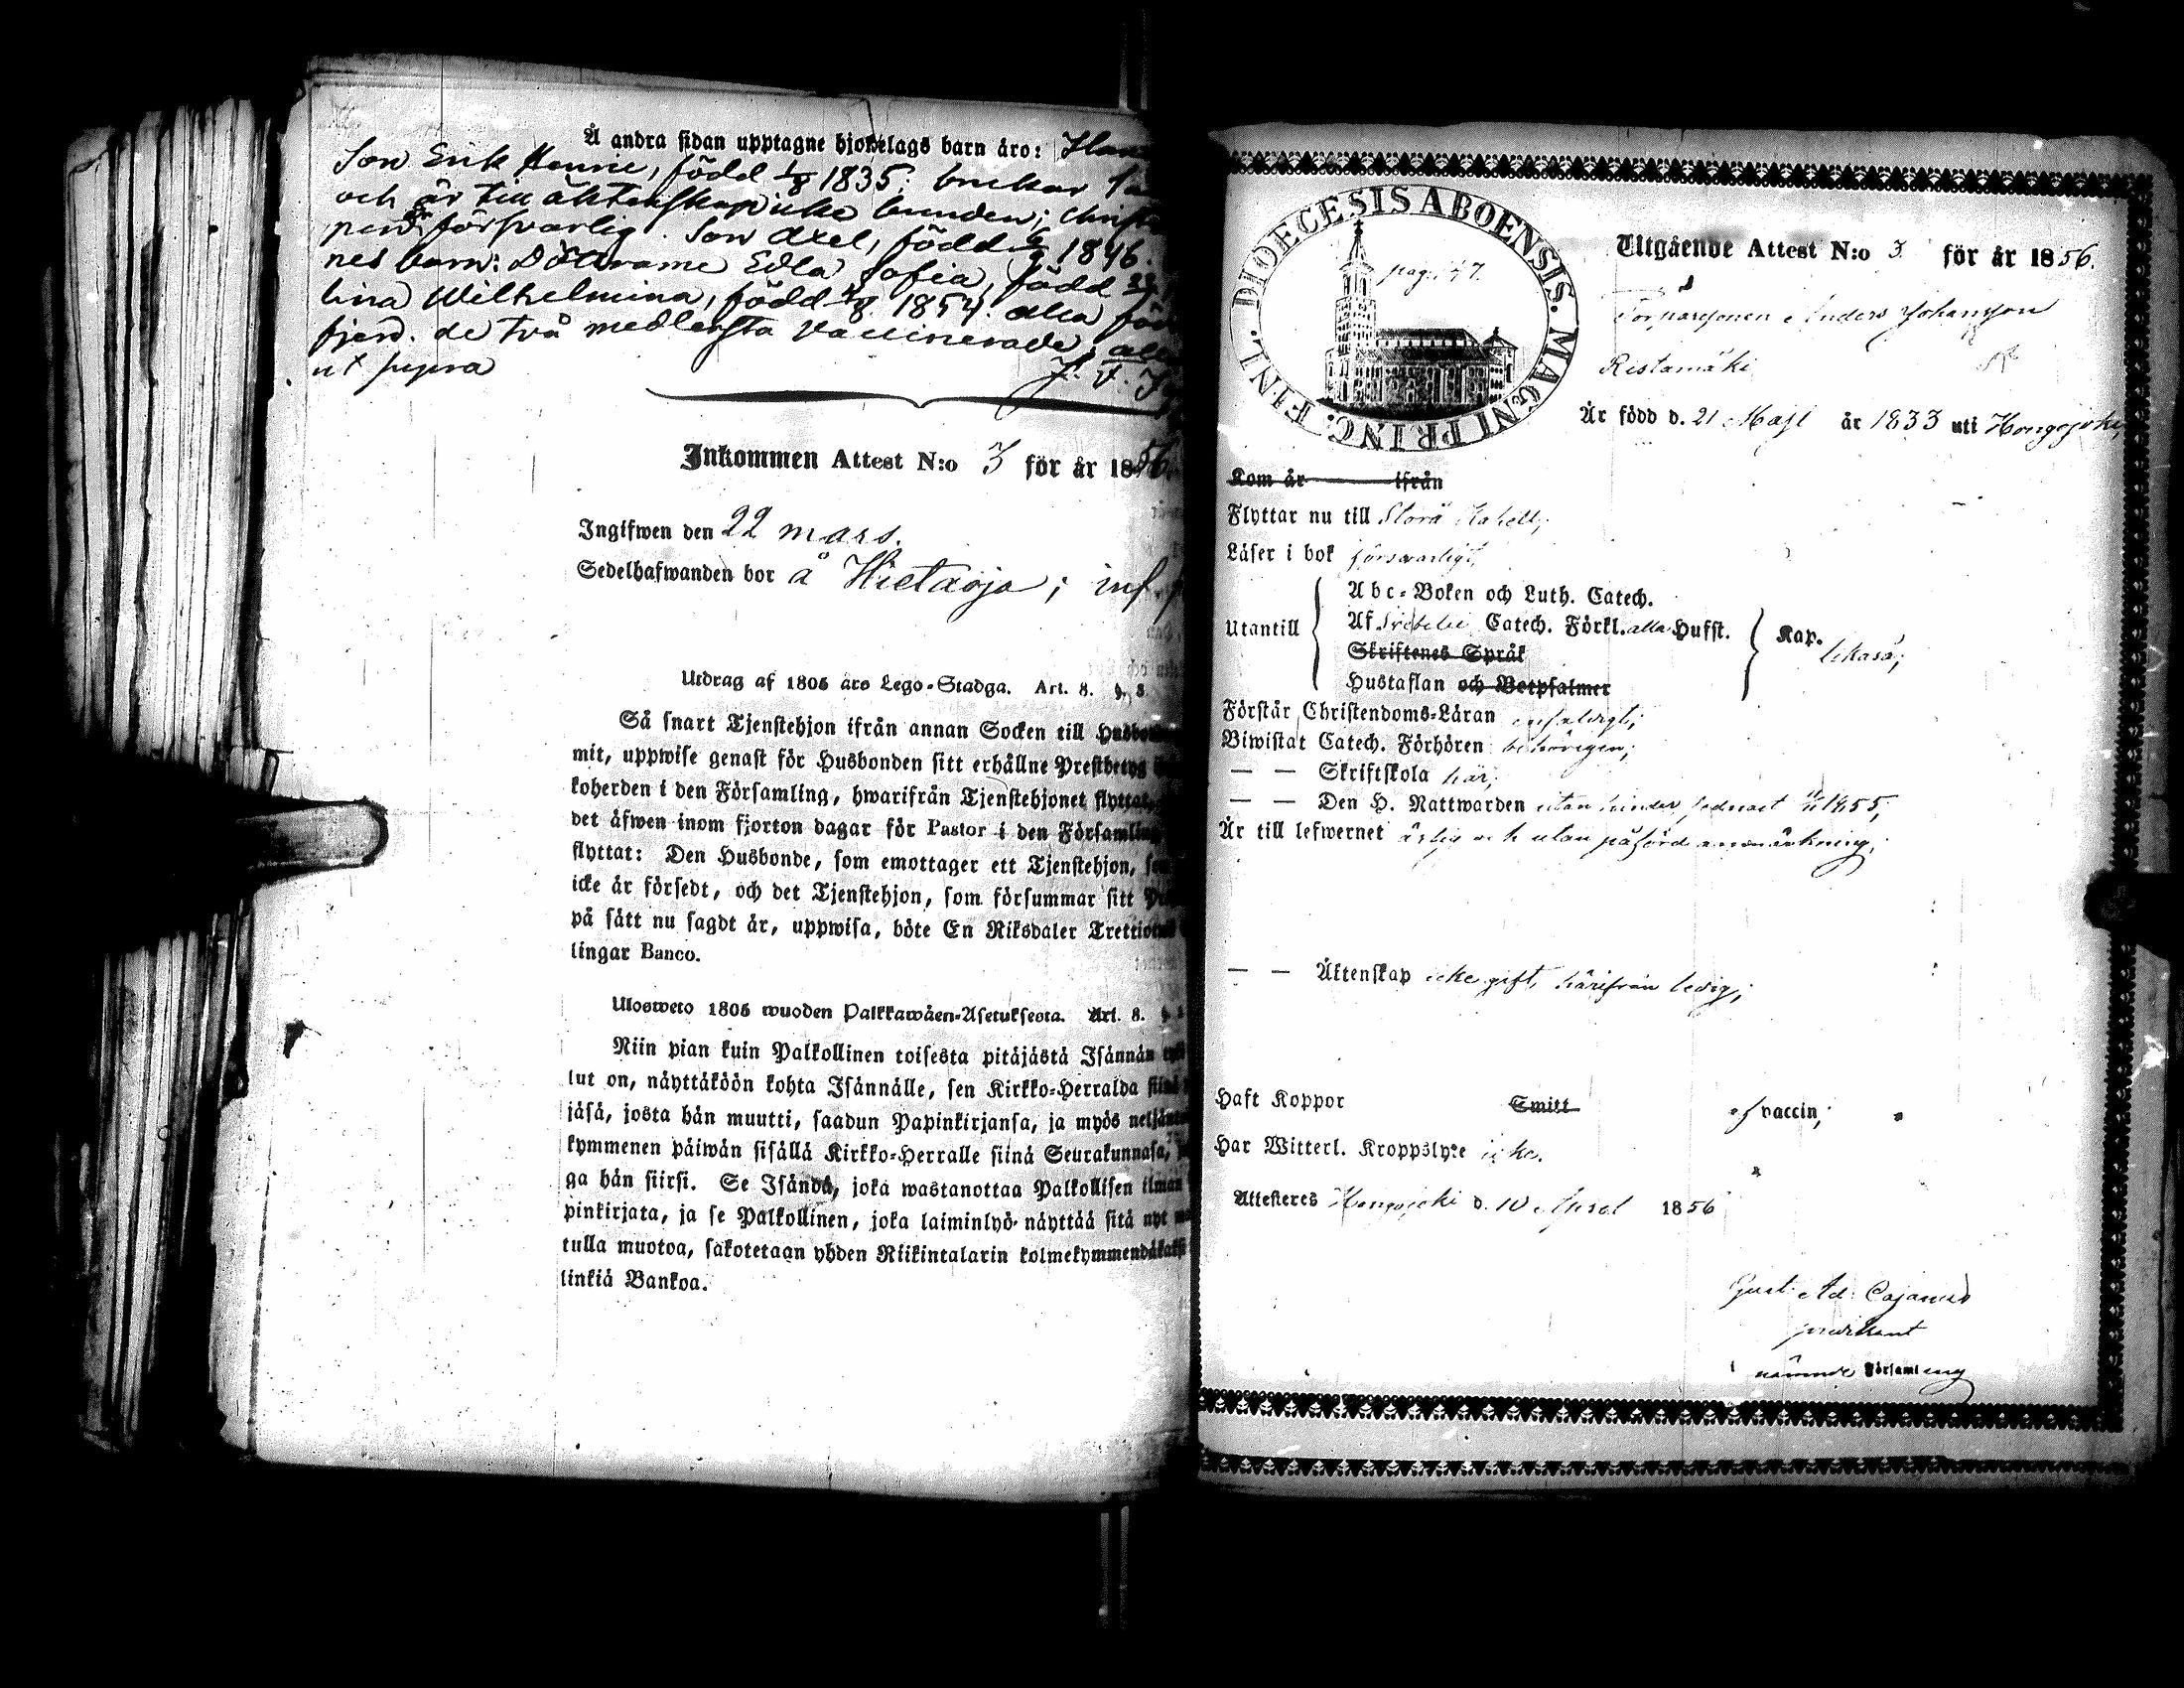 Å andra sidan upptagne hjonelags barn äro:
Son Erik Henric, född 1/8 1835. brukar
och är till äktenskap icke bunden;
försvarlig. Son Axel, född 6/9 1846.
nes barn: Döttrarne Edla Sofia, född
lina Wilhelmina, född /8 1854. alla
fjerd. de två medlersta vaccinerade,
ut supra
Inkommen Attest N:o 3 för år 1856.
Ingifwen den 22 mars.
Sedelhafwanden bor å Hietaoja; inf.
Utdrag af 1805 års Lego-Stadga. Art. 8. §. 8.
Så snart Tjenstehjon ifrån annan Socken till
mit, uppwise genast för Husbonden sitt erhållne Prestbetyg
koherden i den Församling, hwarifrån Tjenstehjonet flyttat,
det äfwen inom fjorton dagar för Pastor i den Församling
flyttat: Den Husbonde, som emottager ett Tjenstehjon,
icke är försedt, och det Tjenstehjon, som försummar sitt
på sätt nu sagdt är, uppwisa, böte En Riksdaler
lingar Banco.
Ulosweto 1805 wuoden Palkkawäen-Asetuksesta. Art. 8.
Niin pian kuin Palkollinen toisesta pitäjästä Isännän
lut on, näyttäköön kohta Isännälle, sen Kirkko-Herralda
jäsä, josta hän muutti, saadun Papinkirjansa, ja myös
kymmenen päiwän sisällä Kirkko-Herralle siinä Seurakunnasa,
ga hän siirsi. Se Isändä, joka wastanottaa Palkollisen ilman
pinkirjata, ja se Palkollinen, joka laiminlyö näyttää sitä nyt
tulla muotoa, sakotetaan yhden Riikintalarin
linkiä Bankoa.
FINL. DIOECESIS ABOENSIS. MAGNI PRINC.
pag. 147.
Utgående Attest N:o 3 för år 1856.
Torparsonen Anders Johansson
Ristamäki
Är född d. 21 Maji år 1833 uti Hongojoki,
Kom år ifrån
Flyttar nu till Storå Kapell;
Läser i bok försvarligt,
Utantill
Abc-Boken och Luth. Catech.
Af Svebelii Catech. Förkl. alla Hufst.
Skriftenes Språk
Hustaflan och Botpsalmer
Kap.
likaså;
Förstår Christendoms-Läran enfaldigt;
Biwistat Catech. Förhören behörigen;
— — Skriftskola här;
— — Den H. Nattwarden utan hinder, sednast 1855;
Är till lefwernet ärlig och utan påförd anmärkning;
— — Äktenskap icke gift, härifrån ledig;
Haft Koppor Smitt af vaccin;
Har Witterl. Kroppslyte icke.
Attesteres Hongojoki d. 10 April 1856
Gust. Ad. Cajanus
predikant
nämnde Församling